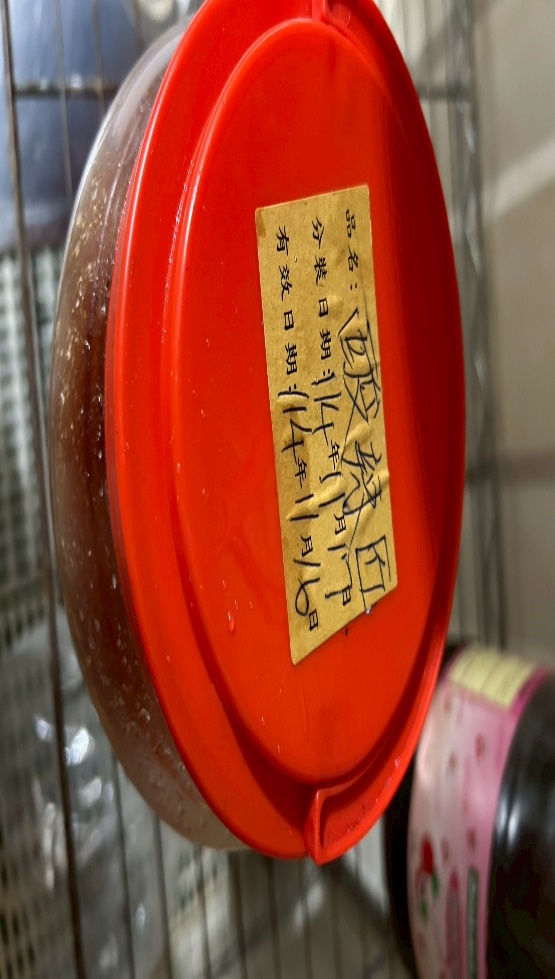 品名:酸辣
分裝日期:114年11月1日
有效日期:114年11月16日